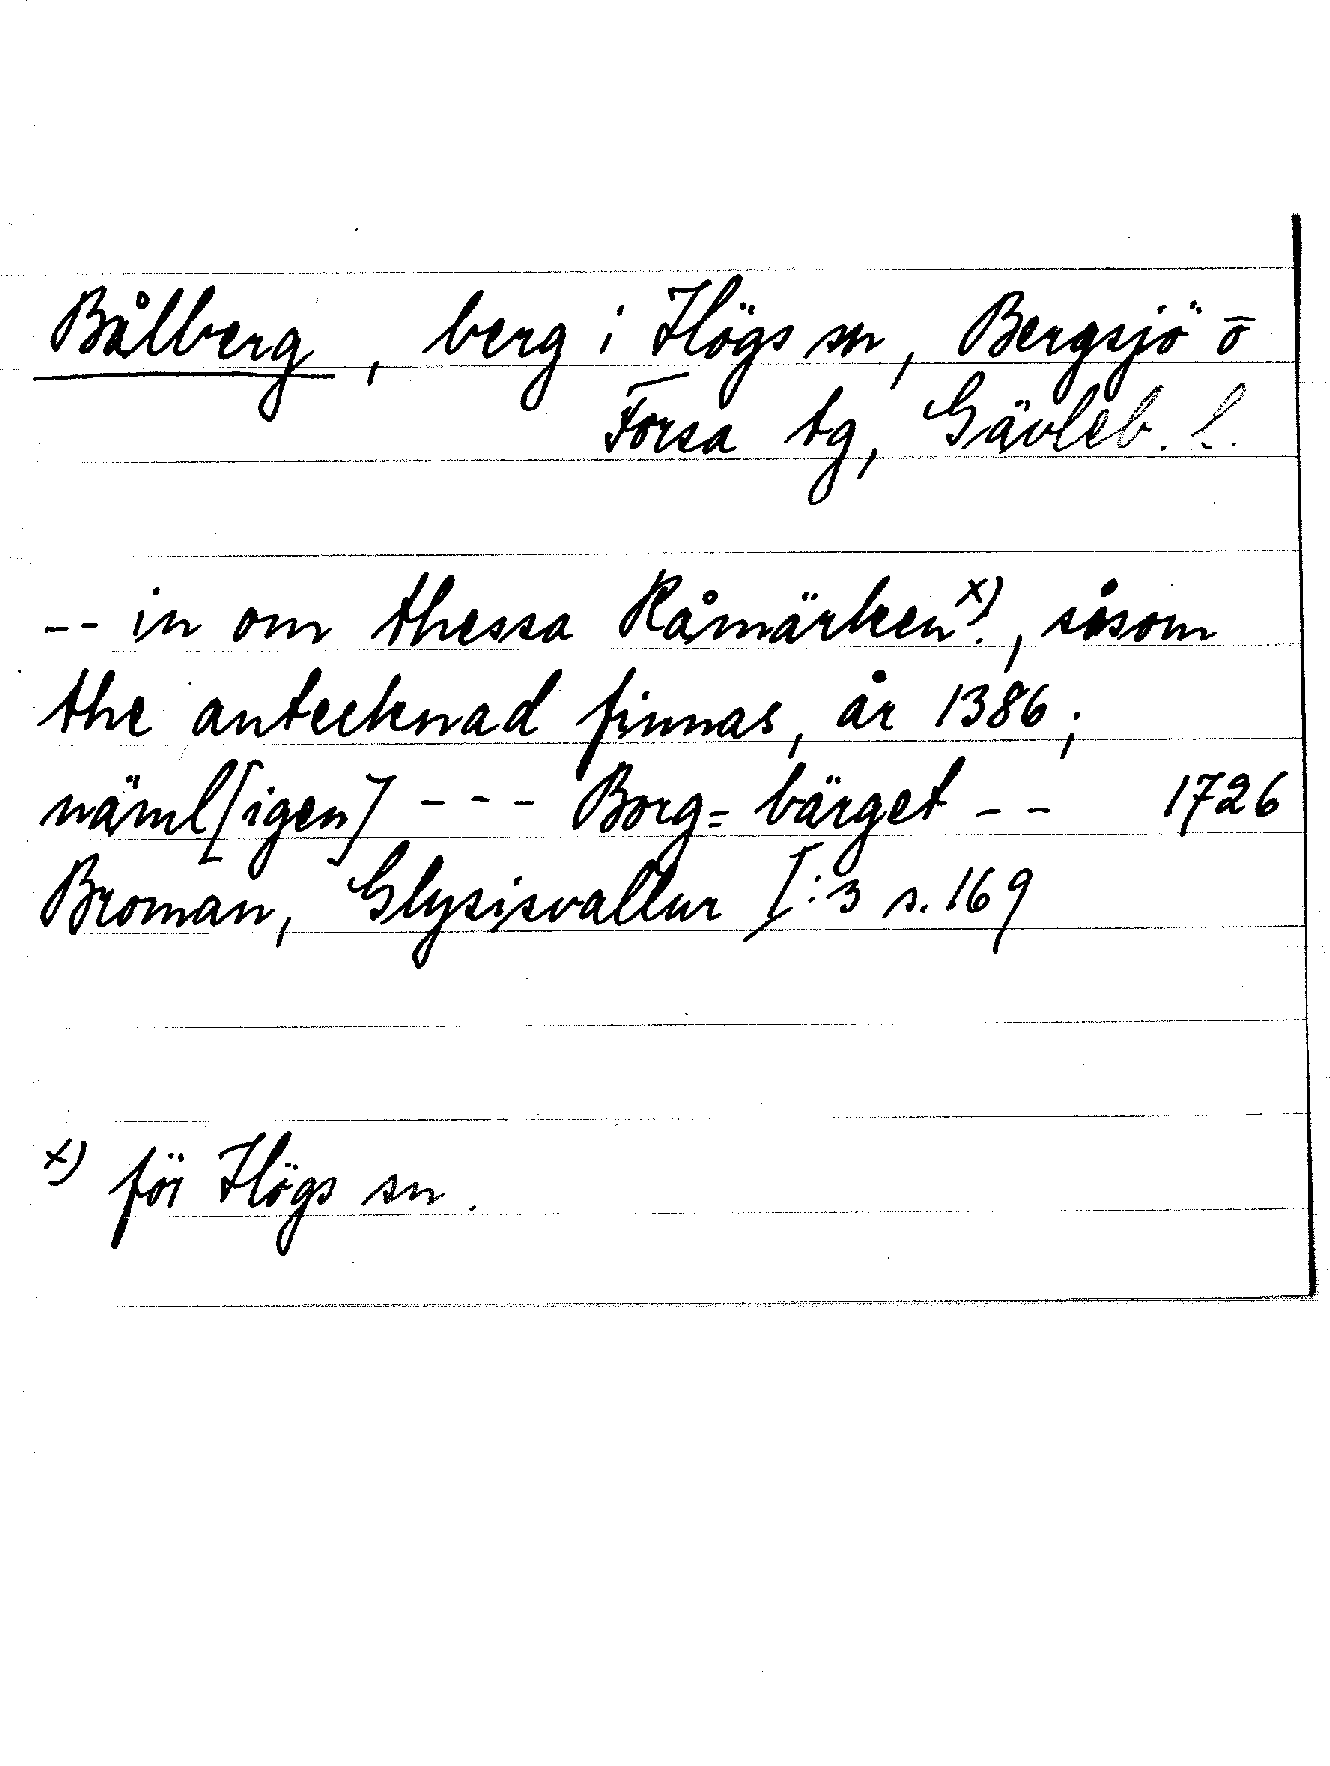 Bålberg, berg i Högs sn, Bergsjö o
Forsa tg, Gävleb. l.
-- in om thessa Råmärken x)., såsom
the antecknad finnas, år 1386;
näml[igen] --- Borg= bärget -- 1726
Broman, Glysisvallur I:3 s. 169
x) för Högs sn.